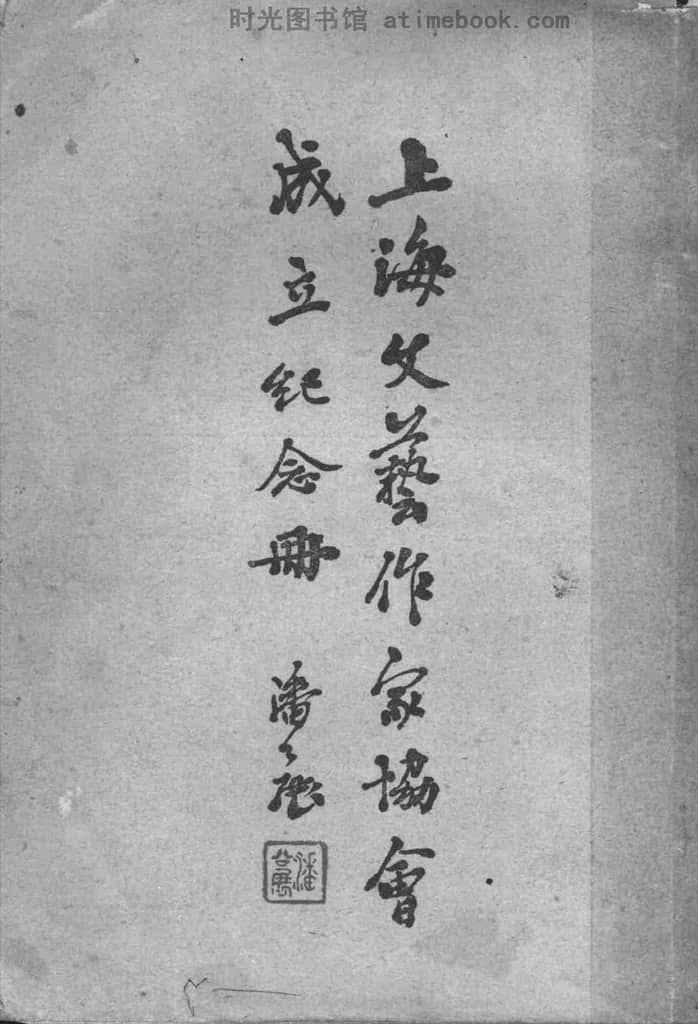 时光图书馆 atimebook.com
上海文藝作家協會
成立纪念冊
潘公展
潘公展